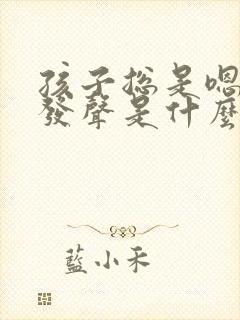 孩子總是嗯
發聲是什麼
藍小禾